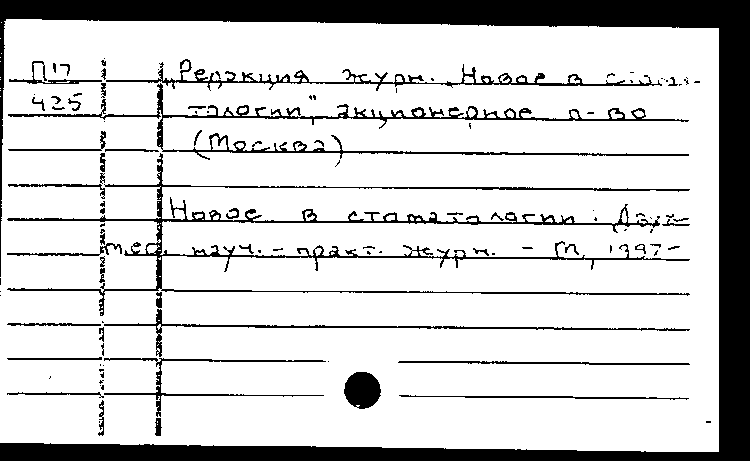 П17
425
„Редакция журн. „Новое в стома-
тологии", акционерное о-во
(Москва)
Новое в стоматологии : Двух-
мес. науч.-практ. журн. - М., 1997-